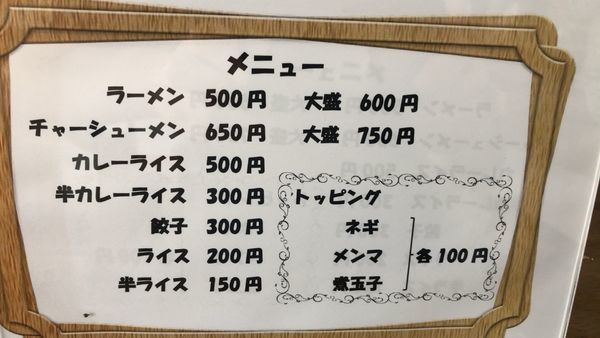 メニュー
ラーメン 500円 大盛 600円
チャーシューメン 650円 大盛 750円
カレーライス 500円
半カレーライス 300円 トッピング
餃子 300円 ネギ
ライス 200円 メンマ 各100円
半ライス 150円 煮玉子